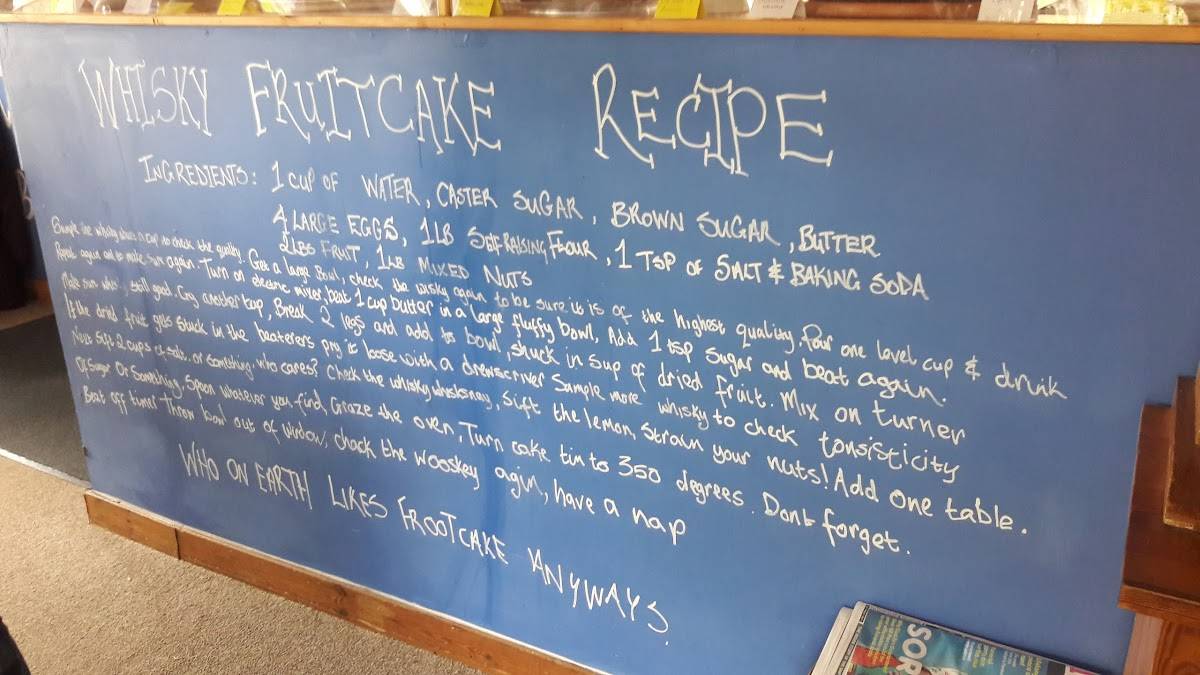 WHISKY FRUITCAKE RECIPE
INGREDIENTS: 1 CUP OF WATER, CASTER SUGAR, BROWN SUGAR, BUTTER
4 LARGE EGGS, 1LB SELF-RAISING FLOUR, 1 TSP OF SALT & BAKING SODA
2LBS FRUIT, 1LB MIXED NUTS
Sample the whisky in a cup to check the quality. Get a large Bowl, check the wisky again to be sure it is of the highest quality. Pour one level cup & drink
Repeat again to make sure again. Turn on electric mixer, beat 1 cup butter in a large fluffy bowl, Add 1 tsp Sugar and beat again.
Make sure still good. Cry another tup, Break 2 legs and add to bowl, chuck in sup of dried fruit. Mix on turner
If the dried fruit gets stuck in the beaterers pry it loose with a drewscriver Sample more whisky to check tonsisticity
Next Sift 2 cups of salt. or something, who cares? Check the whisky, Sift the lemon, strain your nuts! Add one table.
Of Sugar Or Something, Spoon whatever you find, Graze the oven, Turn cake tin to 350 degrees. Don't forget.
Beat off timer Throw bowl out of window, chack the wooskey agin, have a nap
WHO ON EARTH LIKES FROOTCAKE ANYWAYS.
SOR